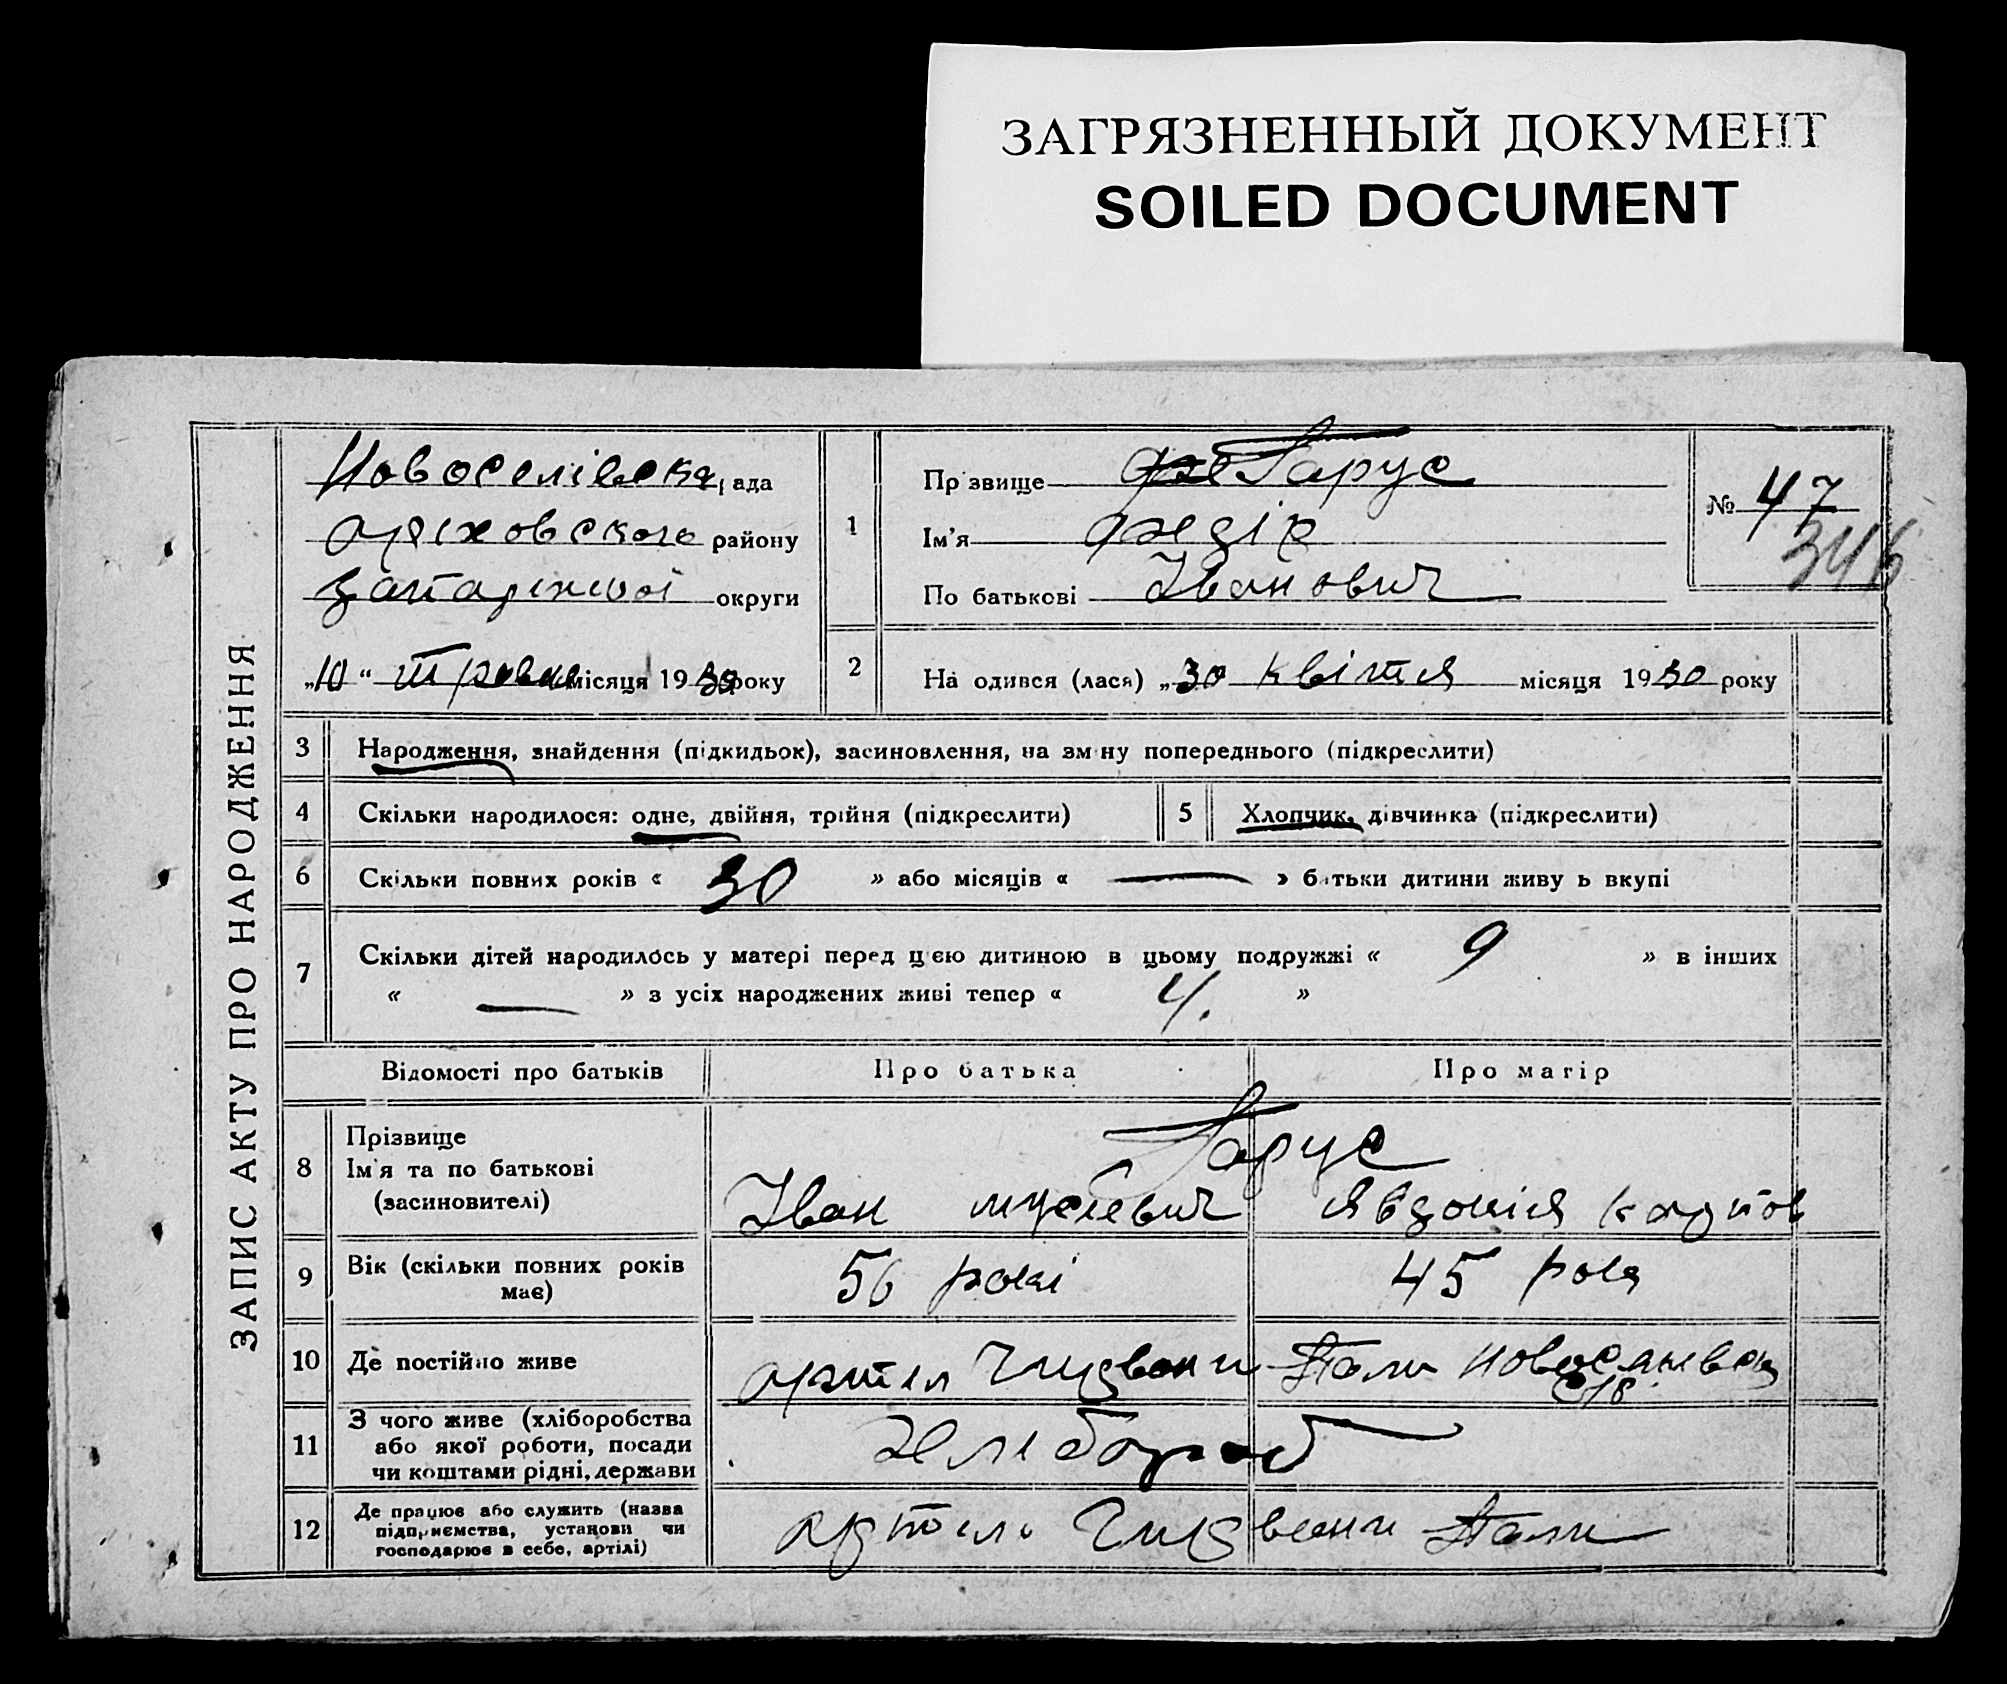 ЗАГРЯЗНЕННЫЙ ДОКУМЕНТ
SOILED DOCUMENT
ЗАПИС АКТУ ПРО НАРОДЖЕННЯ
Новоселівска рада
Оріховского району
Запаріжної округи
„10“ травня місяця 1930 року
1
Прізвище Гарус
Ім'я Федір
По батькові Іванович
№ 47
346
2
На одився (лася) „30 квітня місяця 1930 року
3 Народження, знайдення (підкидьок), засиновлення, на зміну попереднього (підкреслити)
4 Скільки народилося: одне, двійня, трійня (підкреслити)
5 Хлопчик, дівчинка (підкреслити)
6 Скільки повних років « 30 » або місяців « — » батьки дитини живу ь вкупі
7 Скільки дітей народилось у матері перед цією дитиною в цьому подружжі « 9 » в інших
« — » з усіх народжених живі тепер « 4. »
Відомості про батьків Про батька Про матір
8 Прізвище
Ім'я та по батькові
(засиновителі)
Гарус
Іван Мусієвич Явдокія Карпов
9 Вік (скільки повних років
має)
56 років 45 рокя
10 Де постійно живе
Артіл Поли Новоселівск
11 З чого живе (хліборобства
або якої роботи, посади
чи коштами рідні, держави
Хлібороб
12 Де працює або служить (назва
підприємства, установи чи
господарює в себе, артілі)
Артіль Поли